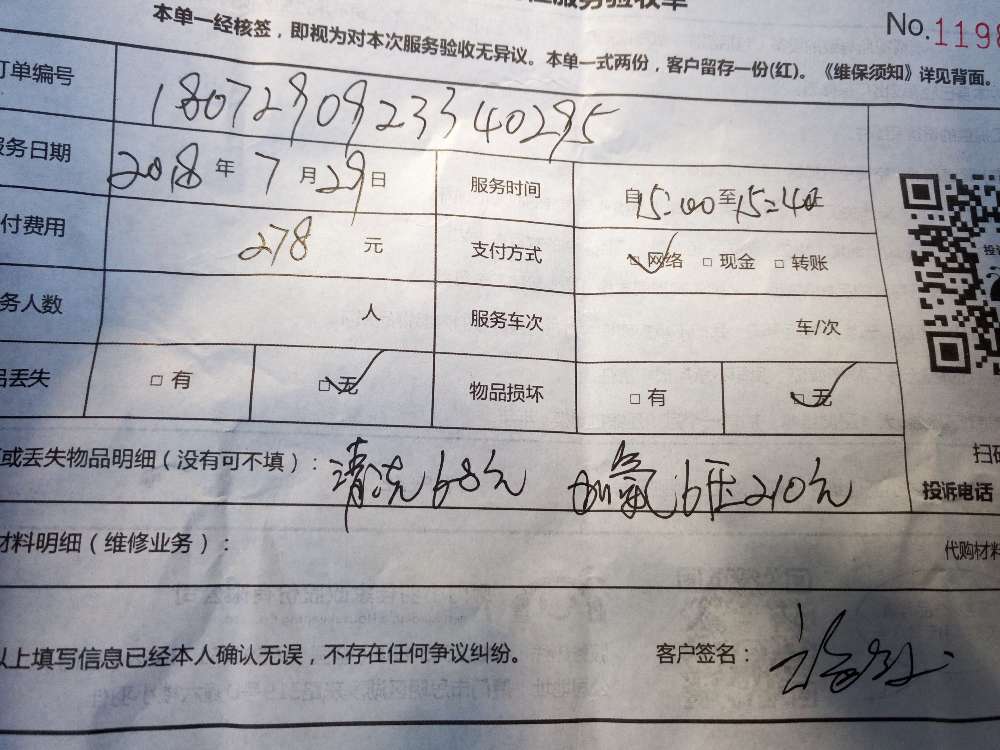 服务验收单
本单一经核签，即视为对本次服务验收无异议。本单一式两份，客户留存一份(红)。《维保须知》详见背面。
No.1198
订单编号 18072909233440295
服务日期 2018年7月29日 服务时间 自15:00至15:40止
付费用 278元 支付方式 □网络 □现金 □转账
务人数 人 服务车次 车/次
品丢失 □有 □无 物品损坏 □有 □无
或丢失物品明细（没有可不填）：清洗68元 加氟6压210元
扫码
投诉电话
材料明细（维修业务）：
代购材料
以上填写信息已经本人确认无误，不存在任何争议纠纷。 客户签名：